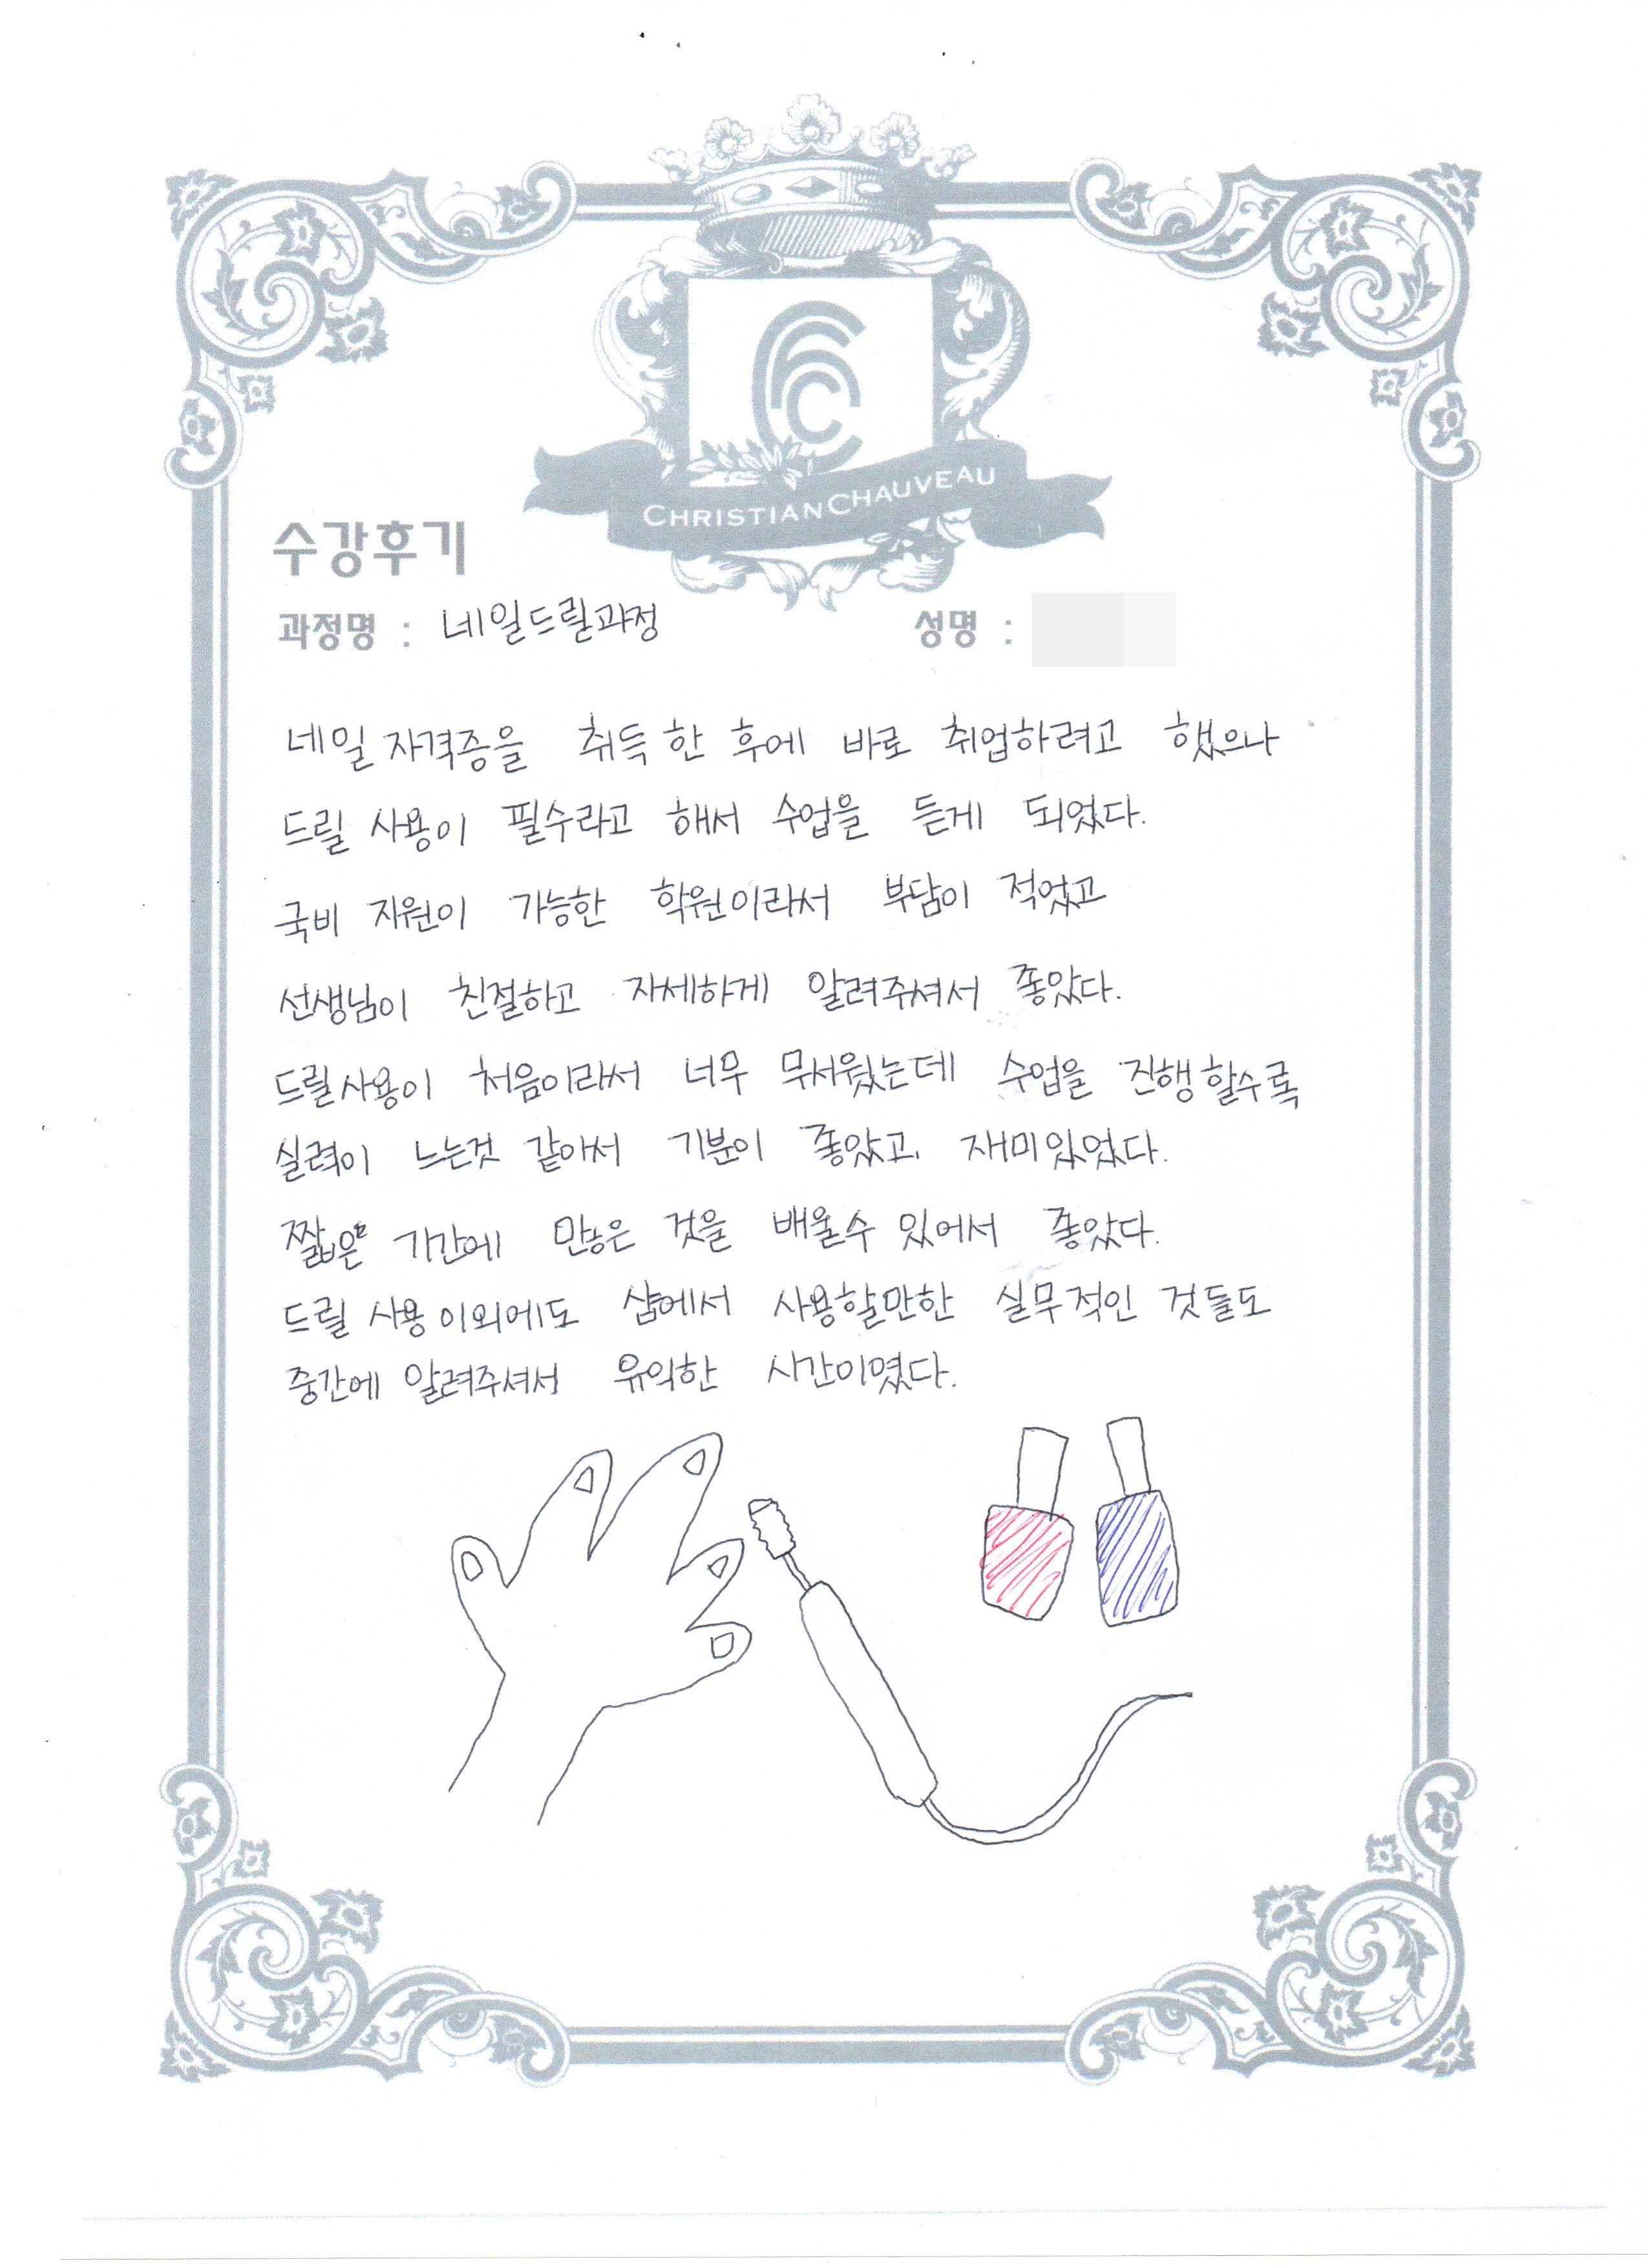 CHRISTIAN CHAUVEAU
수강후기
과정명 : 네일드릴과정 성명 :
네일 자격증을 취득한 후에 바로 취업하려고 했으나
드릴 사용이 필수라고 해서 수업을 듣게 되었다.
국비 지원이 가능한 학원이라서 부담이 적었고
선생님이 친절하고 자세하게 알려주셔서 좋았다.
드릴사용이 처음이라서 너무 무서웠는데 수업을 진행할수록
실력이 느는것 같아서 기분이 좋았고, 재미있었다.
짧은 기간에 많은 것을 배울수 있어서 좋았다.
드릴 사용 이외에도 샵에서 사용할만한 실무적인 것들도
중간에 알려주셔서 유익한 시간이였다.